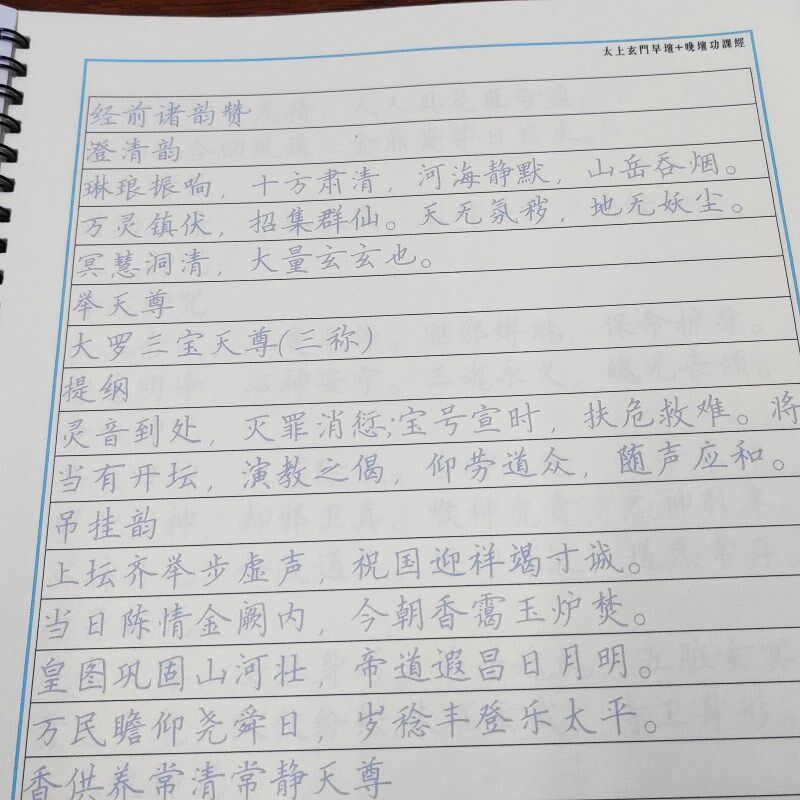 太上玄門早壇+晚壇功課經
经前诸韵赞
澄清韵
琳琅振响，十方肃清，河海静默，山岳吞烟。
万灵镇伏，招集群仙。天无氛秽，地无妖尘。
冥慧洞清，大量玄玄也。
举天尊
大罗三宝天尊(三称)
提纲
灵音到处，灭罪消愆;宝号宣时，扶危救难。将
当有开坛，演教之偈，仰劳道众，随声应和。
吊挂韵
上坛齐举步虚声，祝国迎祥竭寸诚。
当日陈情金阙内，今朝香霭玉炉焚。
皇图巩固山河壮，帝道遐昌日月明。
万民瞻仰尧舜日，岁稔丰登乐太平。
香供养常清常静天尊